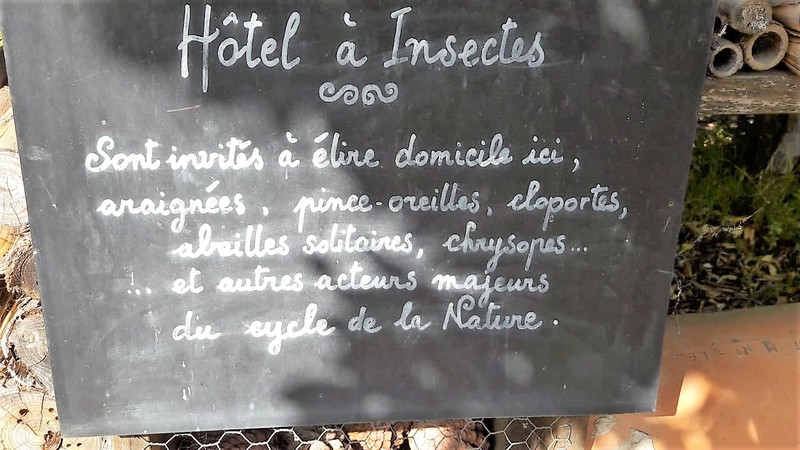 Hôtel à Insectes
Sont invités à élire domicile ici,
araignées, pince-oreilles, cloportes,
abeilles solitaires, chrysopes...
... et autres acteurs majeurs
du cycle de la Nature.